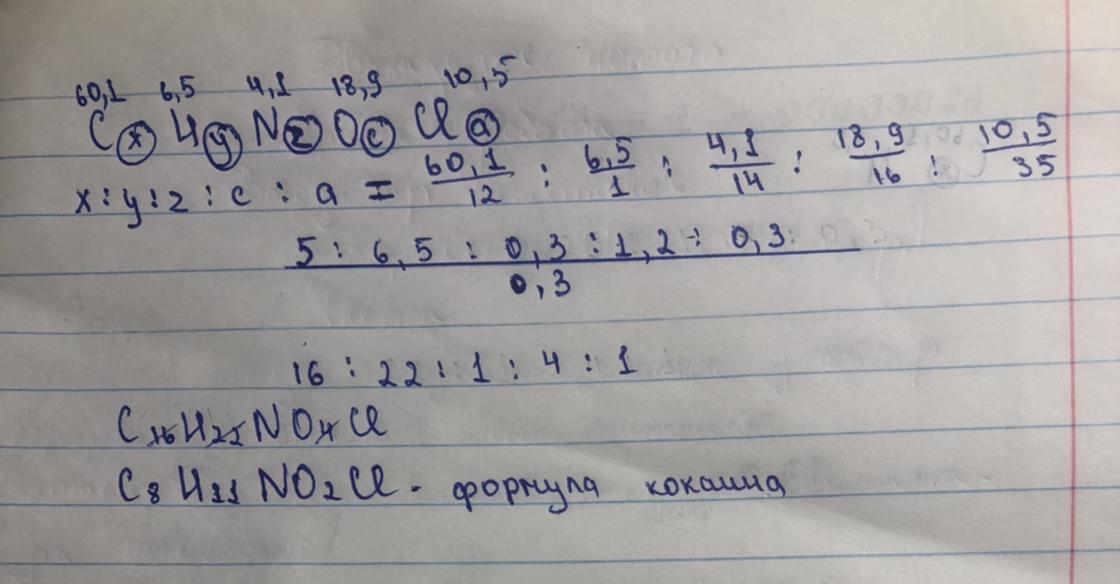 60,1 6,5 4,1 18,9 10,5
CxHyNzOcCla
x:y:z:c:a = 60,1/12 : 6,5/1 : 4,1/14 : 18,9/16 : 10,5/35
5 : 6,5 : 0,3 : 1,2 : 0,3
0,3
16 : 22 : 1 : 4 : 1
C16H22NO4Cl
C8H11NO2Cl - формула кокаина